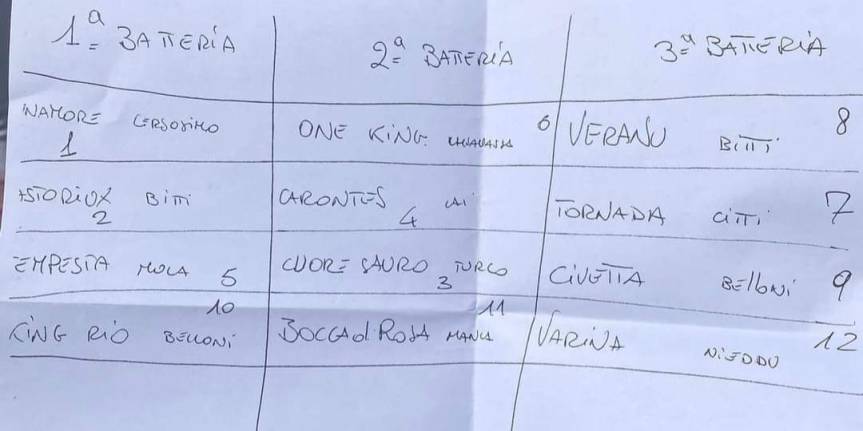 1ª BATTERIA 2ª BATTERIA 3ª BATTERIA
NAMORE CERSOSIMO ONE KING 6 VERANU BITTI 8
1
ISTORIUX BITTI CARONTES CITTI 7
2 4 TORNADA
EMPESTA MOLA 5 CUORE SAURO TURCO CIVETTA Belloni 9
3
10 11
KING RIO BELLONI BOCCA d ROSA MANCA VARINA NIEDDU 12